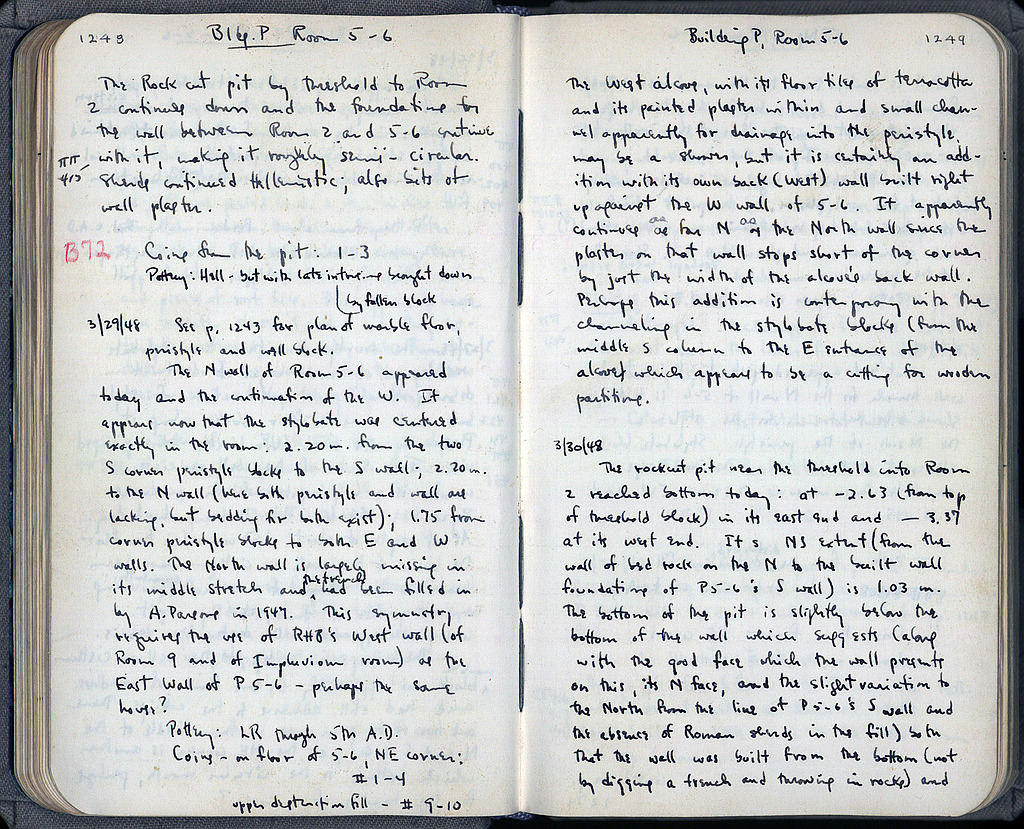 1248 Bldg. P Room 5-6
The Rock cut pit by threshold to Room
2 continues down and the foundations for
the wall between Room 2 and 5-6 continue
ΠΠ with it, making it roughly semi-circular.
415 Sherds continued Hellenistic; also bits of
wall plaster.
B72 Coins from the pit: 1-3
Pottery: Hell - but with late intrusions brought down
by fallen block
3/29/48 See p. 1243 for plan of marble floor,
peristyle and well block.
The N wall of Room 5-6 appeared
today and the continuation of the W. It
appears now that the stylobate was centered
exactly in the room: 2.20 m. from the two
S corner peristyle blocks to the S wall; 2.20 m.
to the N wall (here both peristyle and wall are
lacking, but bedding for both exist); 1.75 from
corner peristyle blocks to both E and W
walls. The North wall is largely missing in
its middle stretch and the trench had been filled in
by A. Parsons in 1947. This symmetry
requires the use of RHB's West wall (of
Room 9 and of Impluvium room) as the
East Wall of P 5-6 - perhaps the same
house?
Pottery: LR through 5th A.D.
Coins - on floor of 5-6, NE corner:
#1-4
upper destruction fill - #9-10
Building P, Room 5-6 1249
The West alcove, with its floor tiles of terracotta
and its painted plaster within and small chan-
nel apparently for drainage into the peristyle,
may be a shower, but it is certainly an add-
ition with its own back (West) wall built right
up against the W wall of 5-6. It apparently
continues as far N as the North wall since the
plaster on that wall stops short of the corner
by just the width of the alcove's back wall.
Perhaps this addition is contemporary with the
channeling in the stylobate blocks (from the
middle S column to the E entrance of the
alcove) which appears to be a cutting for wooden
partitions.
3/30/48
The rockcut pit near the threshold into Room
2 reached bottom today: at -2.63 (from top
of threshold block) in its east end and -3.37
at its west end. Its NS extent (from the
wall of bed rock on the N to the built wall
foundations of P5-6's S wall) is 1.03 m.
The bottom of the pit is slightly below the
bottom of the wall which suggests (along
with the good face which the wall presents
on this, its N face, and the slight variation to
the North from the line of P5-6's S wall and
the absence of Roman sherds in the fill) both
that the wall was built from the bottom (not
by digging a trench and throwing in rocks) and